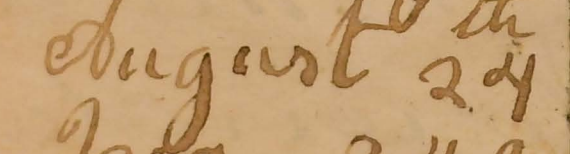 August 24th